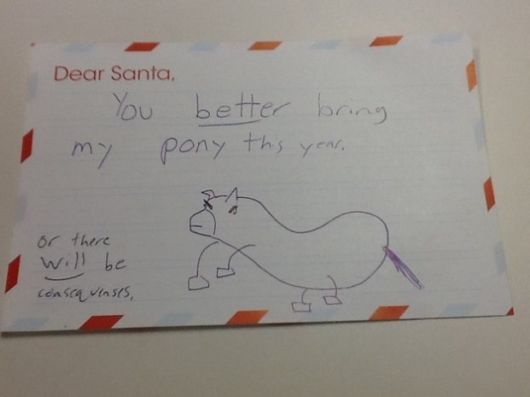 Dear Santa,
You better bring
my pony ths year.
or there
will be
consequinses.